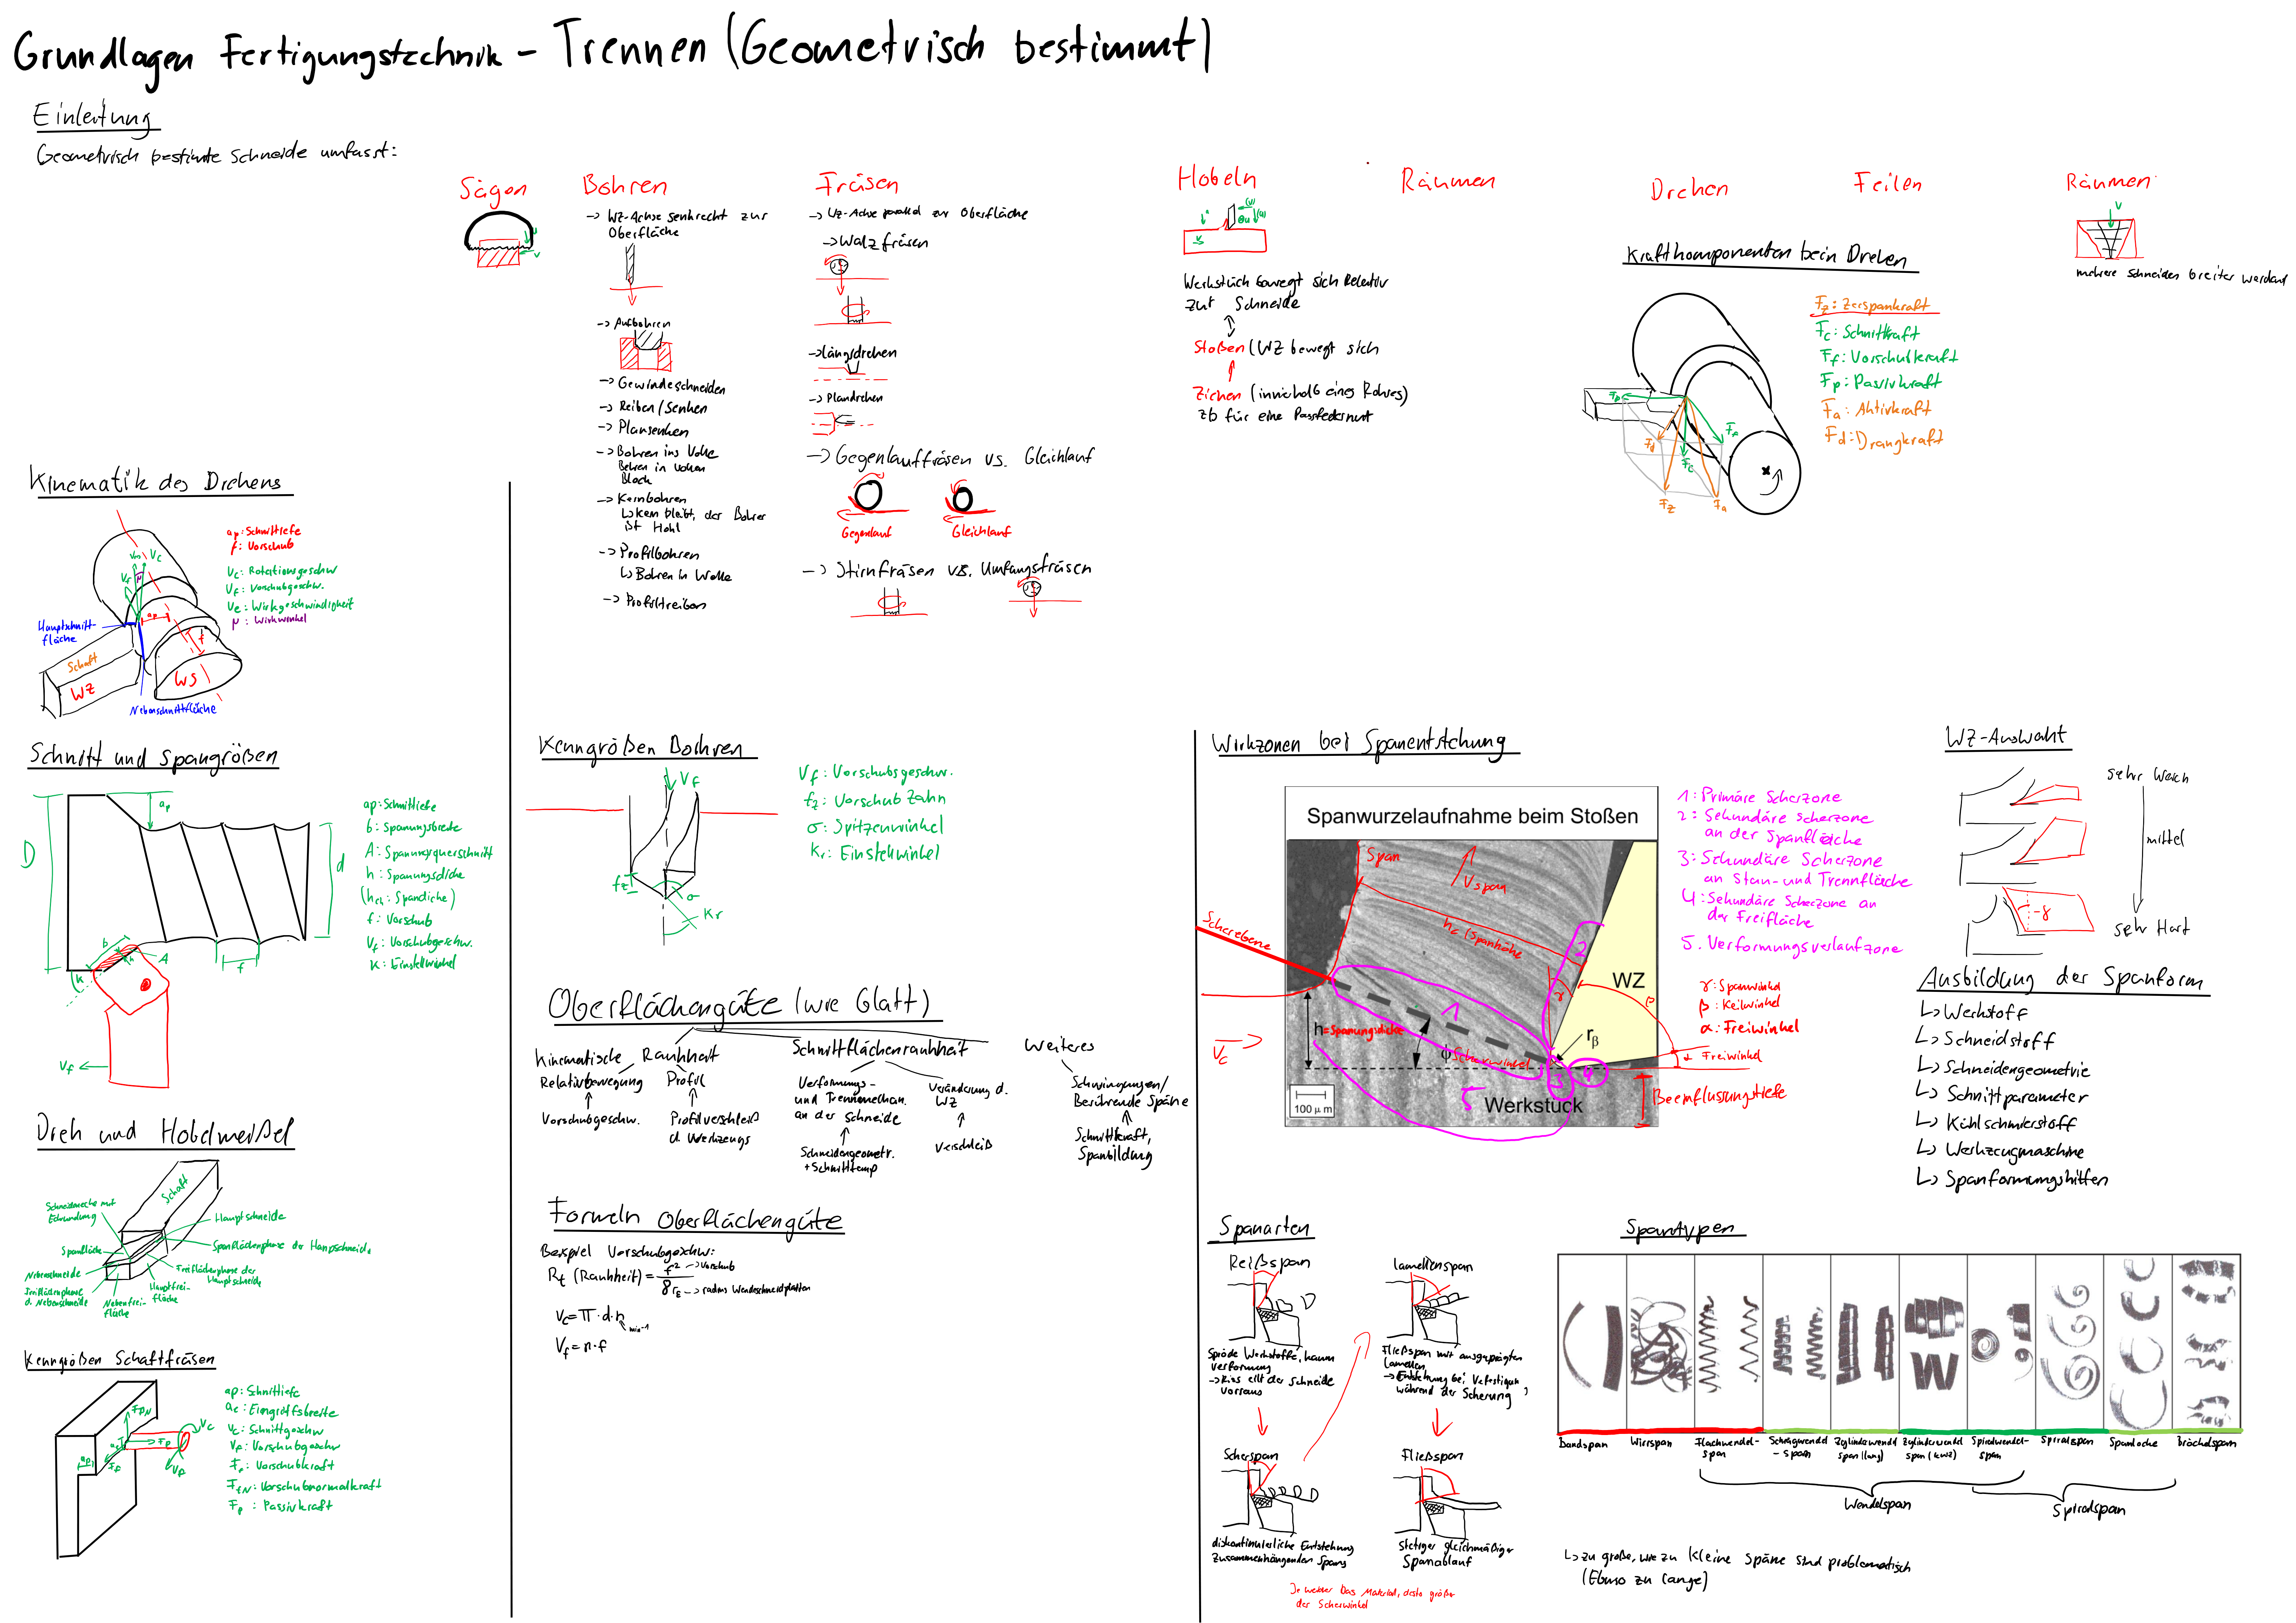 Grundlagen Fertigungstechnik - Trennen (Geometrisch bestimmt)
Einleitung
Geometrisch bestimte Schneide umfasst:
Sägen
Bohren
-> WZ-Achse senkrecht zur
Oberfläche
-> Aufbohren
-> Gewindeschneiden
-> Reiben/Senken
-> Plansenken
-> Bohren ins Volle
Bohren in vollen
Block
-> Kernbohren
↳ Kern bleibt, der Bohrer
ist Hohl
-> Profilbohren
↳ Bohren in Welle
-> Profilreiben
Fräsen
-> WZ-Achse parallel zur Oberfläche
-> Walzfräsen
-> Längsdrehen
-> Plandrehen
-> Gegenlauffräsen vs. Gleichlauf
Gegenlauf
Gleichlauf
-> Stirnfräsen vs. Umfangsfräsen
Hobeln
v
Werkstück bewegt sich Relativ
zur Schneide
Stoßen (WZ bewegt sich
Ziehen (innerhalb eines Rohres)
zb für eine Passfedernut
Räumen
Drehen
Kraftkomponenten beim Drehen
Fp
Ff
Fd
Fc
Fz
Fa
Fz: Zerspankraft
Fc: Schnittkraft
Ff: Vorschubkraft
Fp: Passivkraft
Fa: Aktivkraft
Fd: Drangkraft
Feilen
Räumen
v
mehrere Schneiden breiter werdend
Kinematik des Drehens
ap: Schnittiefe
f: Vorschub
Vc: Rotationsgeschw
Vf: Vorschubgeschw.
Ve: Wirkgeschwindigkeit
μ: Wirkwinkel
Vc
Vf
ap
f
Hauptschnitt-
fläche
Schaft
WZ
WS
Nebenschnittfläche
Schnitt und Spangrößen
D
ap
d
b
A
h
f
K
Vf
ap: Schnittiefe
b: Spanungsbreite
A: Spanungsquerschnitt
h: Spanungsdicke
(hch: Spandicke)
f: Vorschub
Vf: Vorschubgeschw.
K: Einstellwinkel
Dreh und Hobelmeißel
Schaft
Schneidenecke mit
Eckrundung
Spanfläche
Nebenschneide
Freiflächenphase
d. Nebenschneide
Nebenfrei-
fläche
Hauptfrei-
fläche
Freiflächenphase der
Hauptschneide
Spanflächenphase der Hauptschneide
Hauptschneide
Kenngrößen Schaftfräsen
FfN
Vc
ae
Fp
ap
Ff
Vf
ap: Schnittiefe
ae: Eingriffsbreite
Vc: Schnittgeschw
Vf: Vorschubgeschw
Ff: Vorschubkraft
FfN: Vorschubnormalkraft
Fp: Passivkraft
Kenngrößen Bohren
Vf
fz
σ
Kr
Vf: Vorschubsgeschw.
fz: Vorschub Zahn
σ: Spitzenwinkel
Kr: Einstellwinkel
Oberflächengüte (wie Glatt)
Kinematische Rauhheit
Relativbewegung
Vorschubgeschw.
Profil
Profilverschleiß
d. Werkzeugs
Schnittflächenrauhheit
Verformungs-
und Trennmechan.
an der Schneide
Schneidengeometr.
+ Schnitttemp
Veränderung d.
WZ
Verschleiß
Weiteres
Schwingungen/
Berührende Späne
Schnittkraft,
Spanbildung
Formeln Oberflächengüte
Beispiel Vorschubgeschw:
Rt (Rauhheit) = f² -> Vorschub
8 rε -> radius Wendeschneidplatten
Vc = π · d · n
min⁻¹
Vf = n · f
Wirkzonen bei Spanentstehung
Spanwurzelaufnahme beim Stoßen
Span
Vspan
Scherebene
hc (Spanhöhe
2
WZ
γ
β
1
h=Spanungsdicke
ϕ Scherwinkel
rβ
α Freiwinkel
Vc
3
4
5
100 µm
Werkstück
Beeinflussungstiefe
1: Primäre Scherzone
2: Sekundäre Scherzone
an der Spanfläche
3: Sekundäre Scherzone
an Stau- und Trennfläche
4: Sekundäre Scherzone an
der Freifläche
5. Verformungsverlaufzone
γ: Spanwinkel
β: Keilwinkel
α: Freiwinkel
WZ-Auswahl
sehr Weich
mittel
-γ
sehr Hart
Ausbildung der Spanform
↳ Werkstoff
↳ Schneidstoff
↳ Schneidengeometrie
↳ Schnittparameter
↳ Kühlschmierstoff
↳ Werkzeugmaschine
↳ Spanformungshilfen
Spanarten
Reißspan
Spröde Werkstoffe, kaum
Verformung
-> Riss eilt der Schneide
vorraus
Lamellenspan
Fließspan mit ausgeprägten
Lamellen,
-> Entstehung bei Verfestigung
während der Scherung
Scherspan
diskontinuierliche Entstehung
Zusammenhängenden Spans
Fließspan
stetiger gleichmäßiger
Spanablauf
Je weicher Das Material, desto größer
der Scherwinkel
Spantypen
Bandspan
Wirrspan
Flachwendel-
span
Schrägwendel
-span
Zylinderwendel
span (lang)
Zylinderwendel
span (kurz)
Spiralwendel-
span
Spiralspan
Spanlocke
Bröckelspan
Wendelspan
Spiralspan
↳ zu große, wie zu kleine Späne sind problematisch
(Ebenso zu lange)